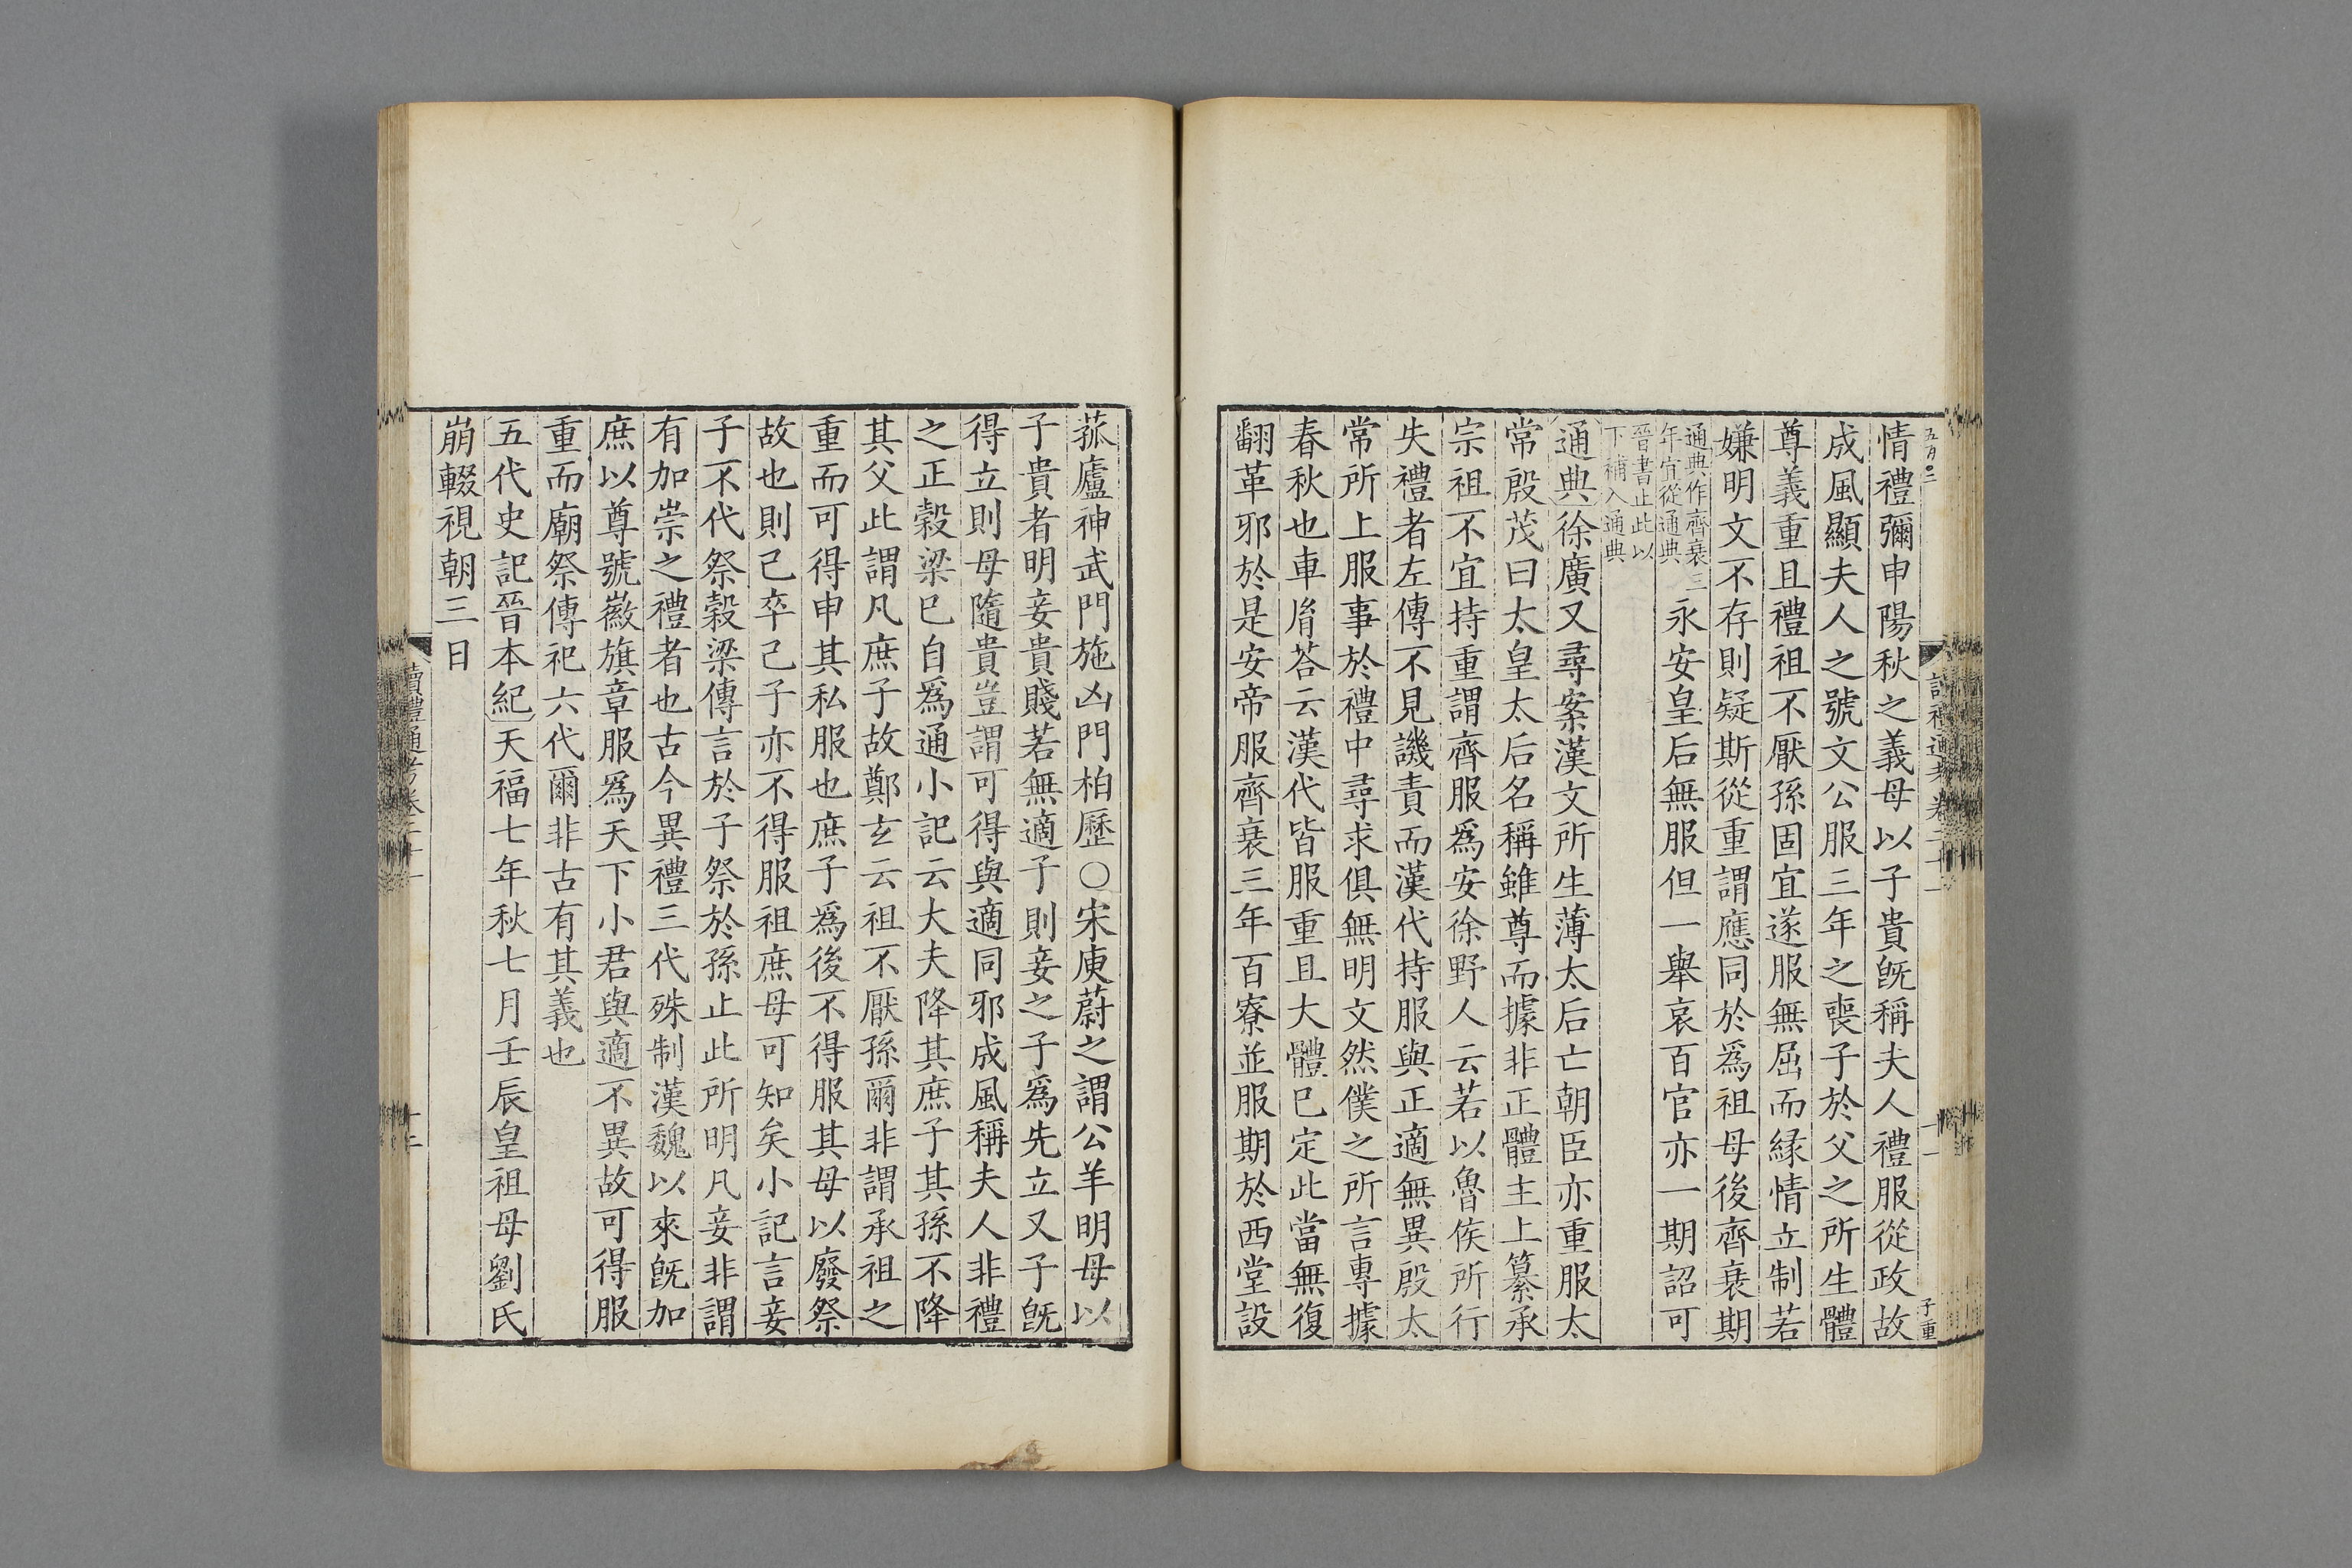 情禮彌申陽秋之義母以子貴旣稱夫人禮服從政故
成風顯夫人之號文公服三年之喪子於父之所生體
尊義重且禮祖不厭孫固宜遂服無屈而緣情立制若
嫌明文不存則疑斯從重謂應同於爲祖母後齊衰期
永安皇后無服但一舉哀百官亦一期詔可
通典作齊衰三
年宜從通典
晉書止此以
下補入通典
通典徐廣又尋案漢文所生薄太后亡朝臣亦重服太
常殷茂曰太皇太后名稱雖尊而據非正體主上纂承
宗祖不宜持重謂齊服爲安徐野人云若以魯侯所行
失禮者左傳不見譏責而漢代持服與正適無異殷太
常所上服事於禮中尋求俱無明文然僕之所言專據
春秋也車胤荅云漢代皆服重且大體已定此當無復
翻革邪於是安帝服齊衰三年百寮並服期於西堂設
菰廬神武門施凶門柏歷○宋庾蔚之謂公羊明母以
子貴者明妾貴賤若無適子則妾之子爲先立又子旣
得立則母隨貴豈謂可得與適同邪成風稱夫人非禮
之正穀梁已自爲通小記云大夫降其庶子其孫不降
其父此謂凡庶子故鄭玄云祖不厭孫爾非謂承祖之
重而可得申其私服也庶子爲後不得服其母以廢祭
故也則己卒己子亦不得服祖庶母可知矣小記言妾
子不代祭穀梁傳言於子祭於孫止此所明凡妾非謂
有加崇之禮者也古今異禮三代殊制漢魏以來旣加
庶以尊號徽旗章服爲天下小君與適不異故可得服
重而廟祭傳祀六代爾非古有其義也
五代史記晉本紀天福七年秋七月壬辰皇祖母劉氏
崩輟視朝三日
讀禮通考卷二十一
十二